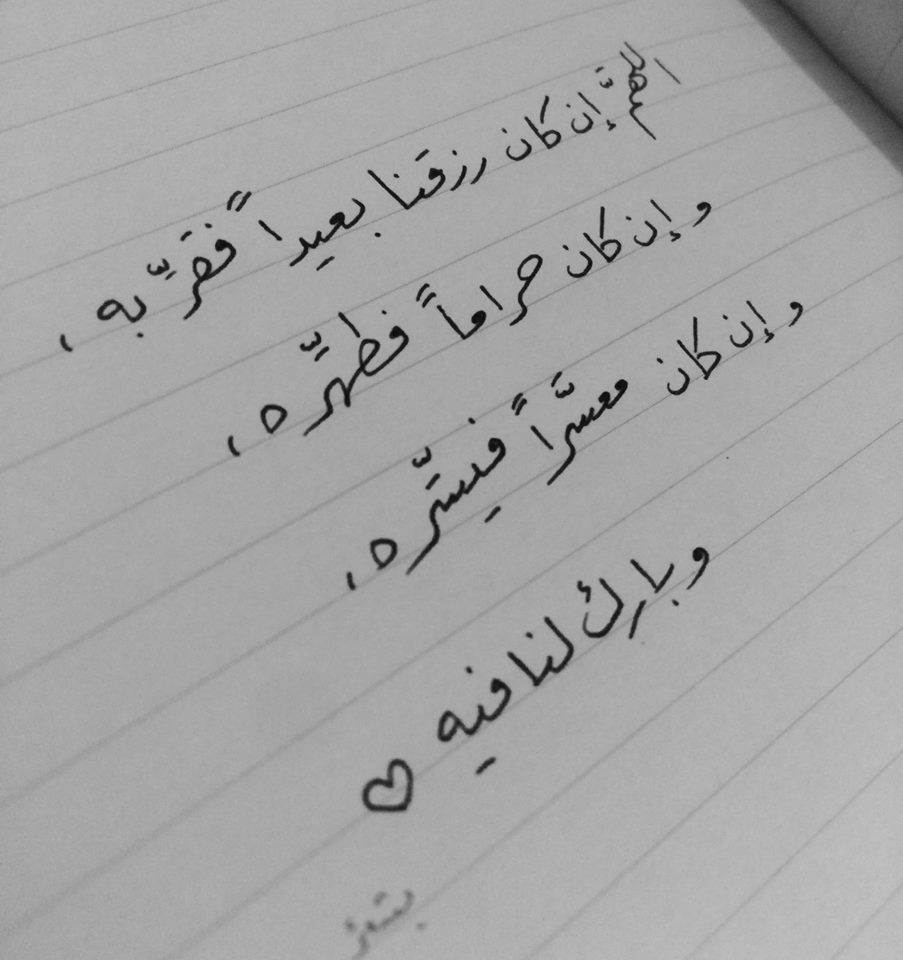 اللهمَّ إن كان رزقنا بعيداً فقرّبه ،
وإن كان حراماً فطهّره ،
وإن كان معسَّراً فيسّره ،
وبارك لنا فيه ♡